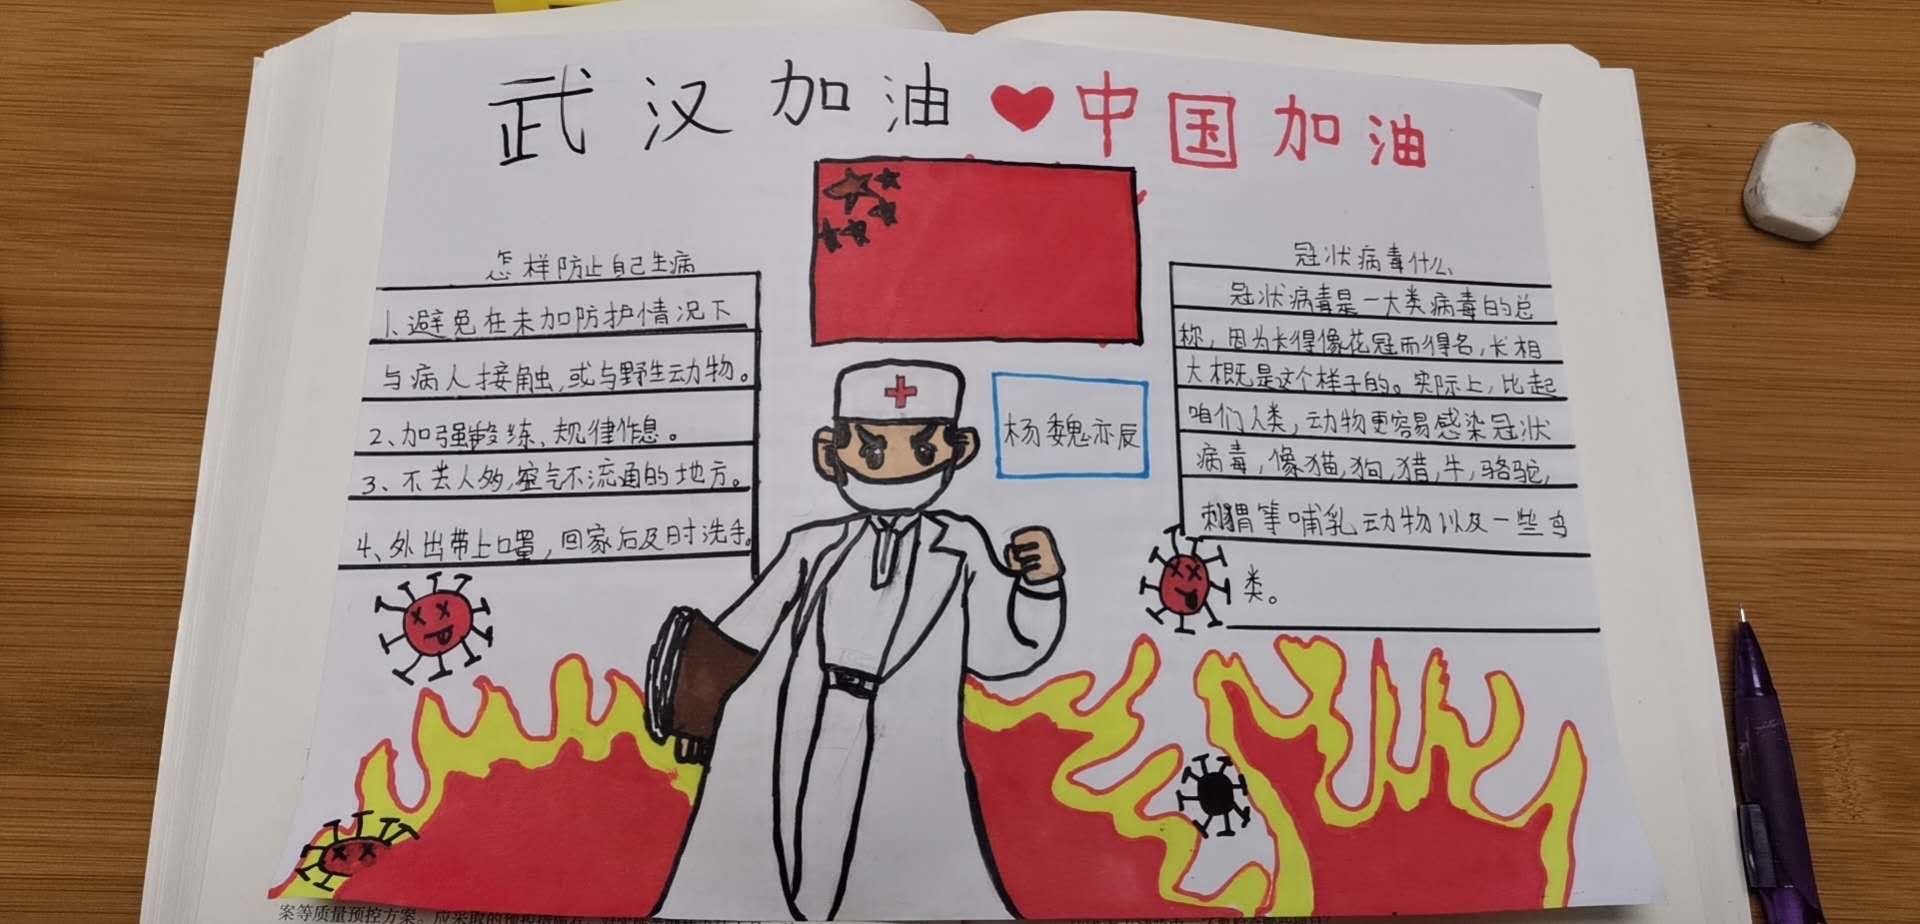 武汉加油❤中国加油
怎样防止自己生病
1、避免在未加防护情况下
与病人接触,或与野生动物。
2、加强锻练、规律作息。
3、不去人多,空气不流通的地方。
4、外出带上口罩,回家后及时洗手。
杨魏亦辰
冠状病毒什么
冠状病毒是一大类病毒的总
称,因为长得像花冠而得名,长相
大概是这个样子的。实际上,比起
咱们人类,动物更容易感染冠状
病毒,像猫,狗,猎,牛,骆驼,
刺猬等哺乳动物以及一些鸟
类。